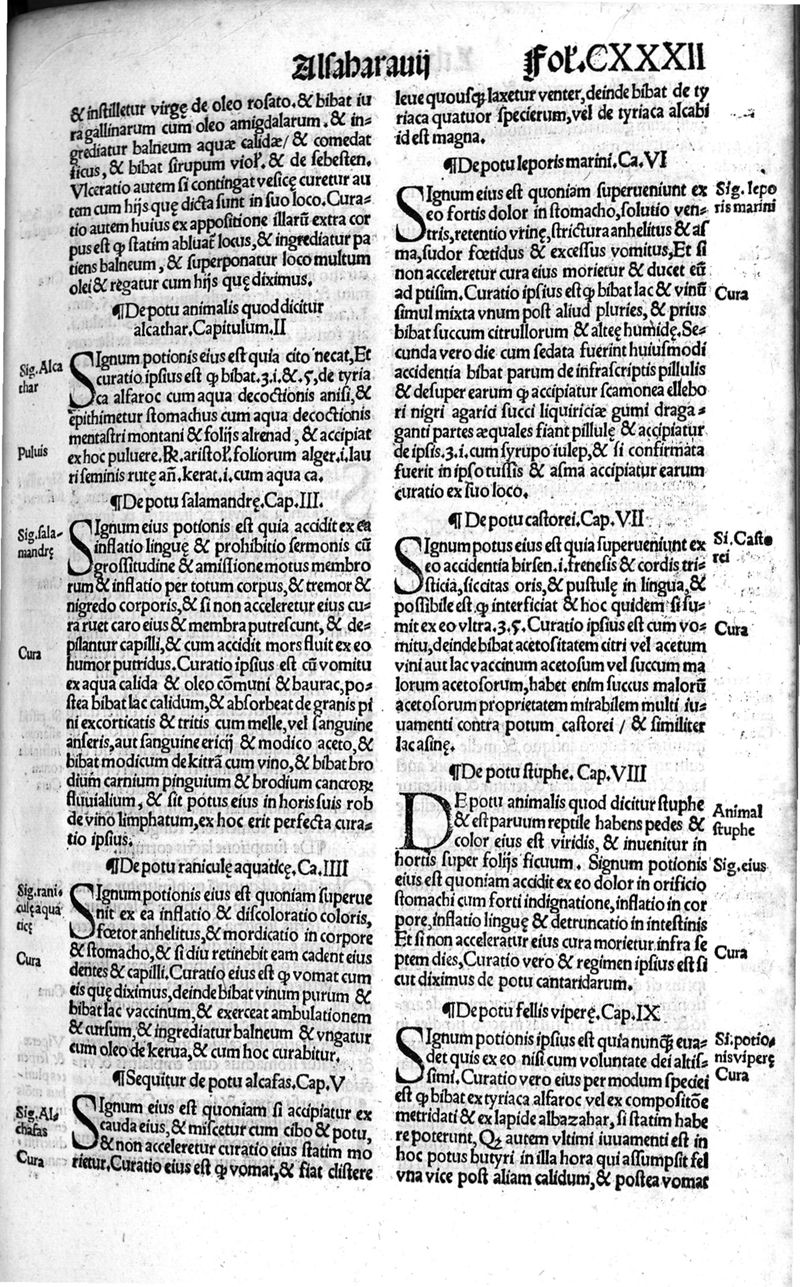 Alsabarauij
Fol.CXXXII
& instilletur virgę de oleo rosato.& bibat iu
ra gallinarum cum oleo amigdalarum.& in-
grediatur balneum aquæ calidæ/ & comedat
ficus,& bibat sirupum viol.& de sebesten.
Vlceratio autem si contingat vesicę curetur au
tem cum hijs quę dicta sunt in suo loco.Cura-
tio autem huius ex appositione illarũ extra cor
pus est ꝙ statim abluat̃ locus,& ingrediatur pa
tiens balneum,& superponatur loco multum
olei & regatur cum hijs quę diximus.
¶De potu animalis quod dicitur
alcathar.Capitulum.II
Sig.Alca
thar
SIgnum potionis eius est quia cito necat,Et
curatio ipsius est ꝙ bibat.ʒ.i.&.ς,de tyria
ca alfaroc cum aqua decoctionis anisi,&
epithimetur stomachus cum aqua decoctionis
mentastri montani & folijs alrenad,& accipiat
Puluis
ex hoc puluere.℞.aristol.foliorum alger.i.lau
ri seminis rutę añ.kerat.i.cum aqua ca.
¶De potu salamandrę.Cap.III.
Sig.sala-
mandrę
SIgnum eius potionis est quia accidit ex ea
inflatio linguę & prohibitio sermonis cũ
grossitudine & amissione motus membro
rum & inflatio per totum corpus,& tremor &
nigredo corporis,& si non acceleretur eius cu-
ra ruet caro eius & membra putrescunt,& de-
pilantur capilli,& cum accidit mors fluit ex eo
Cura
humor putridus.Curatio ipsius est cũ vomitu
ex aqua calida & oleo cõmuni & baurac,po-
stea bibat lac calidum,& absorbeat de granis pi
ni excorticatis & tritis cum melle,vel sanguine
anseris,aut sanguine ericij & modico aceto,&
bibat modicum de kitrã cum vino,& bibat bro
dium carnium pinguium & brodium cancroꝝ
fluuialium,& sit potus eius in horis suis rob
de vino limphatum,ex hoc erit perfecta cura-
tio ipsius.
¶De potu raniculę aquaticę,Ca.IIII
Sig.rani-
culę aqua
ticę
SIgnum potionis eius est quoniam superue
nit ex ea inflatio & discoloratio coloris,
fœtor anhelitus,& mordicatio in corpore
& stomacho,& si diu retinebit eam cadent eius
Cura
dentes & capilli.Curatio eius est ꝙ vomat cum
eis quę diximus,deinde bibat vinum purum &
bibat lac vaccinum,& exerceat ambulationem
& cursum,& ingrediatur balneum & vngatur
cum oleo de kerua,& cum hoc curabitur.
¶Sequitur de potu alcafas.Cap.V
Sig.Al-
chafas
SIgnum eius est quoniam si accipiatur ex
cauda eius,& miscetur cum cibo & potu,
& non acceleretur curatio eius statim mo
Cura
rietur.Curatio eius est ꝙ vomat,& fiat clistere
leue quousꝙ laxetur venter,deinde bibat de ty
riaca quatuor specierum,vel de tyriaca alcabi
id est magna.
¶De potu leporis marini.Ca.VI
Sig.lepo
ris marini
SIgnum eius est quoniam superueniunt ex
eo fortis dolor in stomacho,solutio ven-
tris,retentio vrinę,strictura anhelitus & as
ma,sudor fœtidus & excessus vomitus,Et si
non acceleretur cura eius morietur & ducet eũ
Cura
ad ptisim.Curatio ipsius est ꝙ bibat lac & vinũ
simul mixta vnum post aliud pluries,& prius
bibat succum citrullorum & alteę humidę.Se-
cunda vero die cum sedata fuerint huiusmodi
accidentia bibat parum de infrascriptis pillulis
& desuper earum ꝙ accipiatur scamonea ellebo
ri nigri agarici succi liquiriciæ gumi draga-
ganti partes æquales fiant pillulę & accipiatur
de ipsis.ʒ.i.cum syrupo iulep,& si confirmata
fuerit in ipso tussis & asma accipiatur earum
curatio ex suo loco.
¶De potu castorei.Cap.VII
Si.Casto
rei
SIgnum potus eius est quia superueniunt ex
eo accidentia birsen.i.frenesis & cordis tri-
sticia,siccitas oris,& pustulę in lingua,&
possibile est ꝙ interficiat & hoc quidem si su-
Cura
mit ex eo vltra.ʒ.ς.Curatio ipsius est cum vo-
mitu,deinde bibat acetositatem citri vel acetum
vini aut lac vaccinum acetosum vel succum ma
lorum acetosorum,habet enim succus malorũ
acetosorum proprietatem mirabilem multi iu-
uamenti contra potum castorei / & similiter
lac asinę.
¶De potu stuphe.Cap.VIII
Animal
stuphe
DE potu animalis quod dicitur stuphe
& est paruum reptile habens pedes &
color eius est viridis, & inuenitur in
Sig.eius
hortis super folijs ficuum. Signum potionis
eius est quoniam accidit ex eo dolor in orificio
stomachi cum forti indignatione,inflatio in cor
pore,inflatio linguę & detruncatio in intestinis
Cura
Et si non acceleratur eius cura morietur infra se
ptem dies,Curatio vero & regimen ipsius est si
cut diximus de potu cantaridarum.
¶De potu fellis viperę.Cap.IX
Si.potio-
nis viperę
SIgnum potionis ipsius est quia nunꝙ eua-
det quis ex eo nisi cum voluntate dei altis-
Cura
simi.Curatio vero eius per modum speciei
est ꝙ bibat ex tyriaca alfaroc vel ex compositõe
metridati & ex lapide albazahar,si statim habe
re poterunt,Qꝫ autem vltimi iuuamenti est in
hoc potus butyri in illa hora qui assumpsit fel
vna vice post aliam calidum,& postea vomat